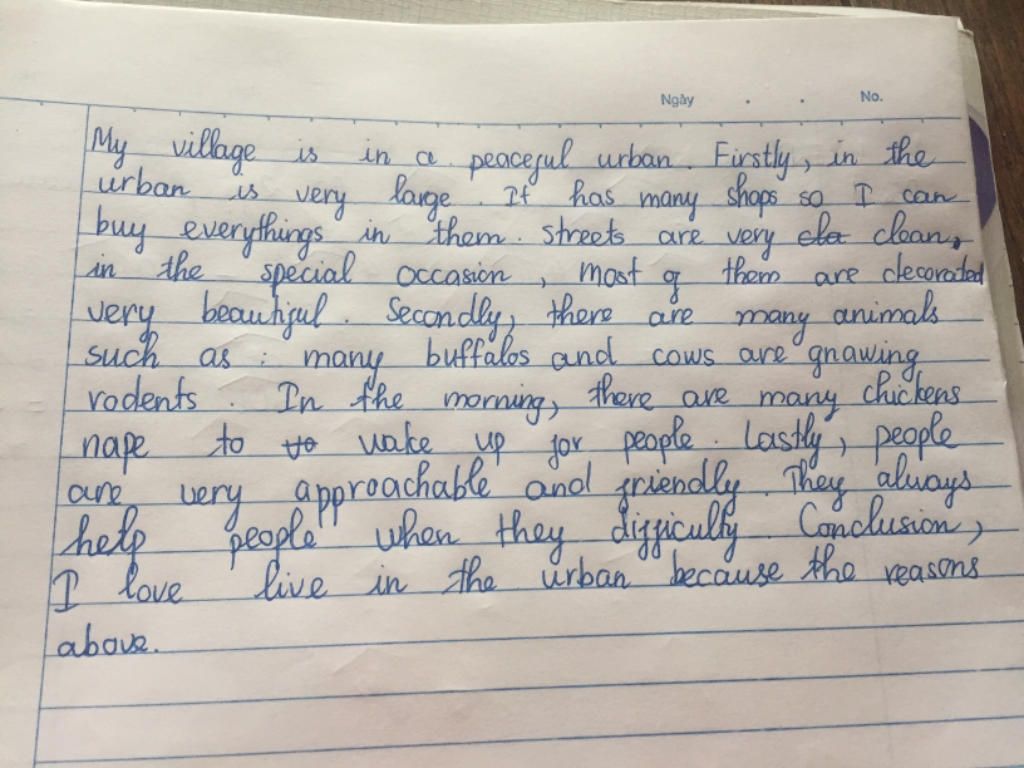 Ngày . . No.
My village is in a peaceful urban. Firstly, in the
urban is very large. It has many shops so I can
buy everythings in them. streets are very cla clean,
in the special occasion, most of them are decorated
very beautiful. Secondly, there are many animals
such as: many buffalos and cows are gnawing
rodents. In the morning, there are many chickens
nape to to wake up for people. Lastly, people
are very approachable and friendly. They always
help people when they difficulty. Conclusion,
I love live in the urban because the reasons
above.